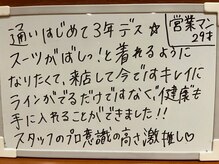 通いはじめて3年デス☆
営業マン
29才
スーツがばしっ!と着れるように
なりたくて、来店して今ですキレイに
ラインがでるだけですなく、"健康"も
手に入れることができました!!
スタッフのプロ意識の高さ激推し♡